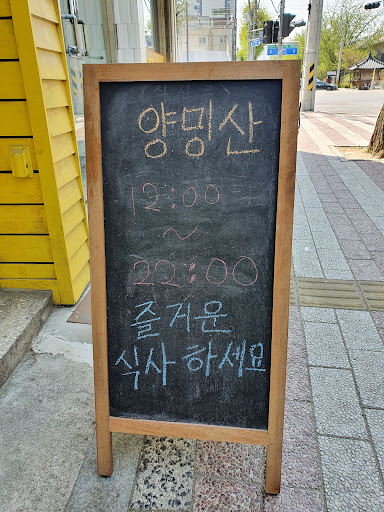 양밍산
12:00
~
22:00
즐거운
식사 하세요